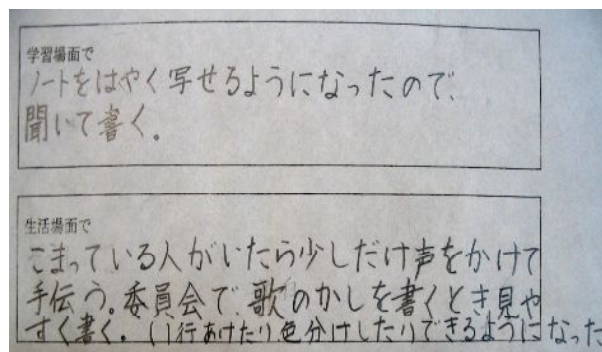 学習場面で
ノートをはやく写せるようになったので、
聞いて書く。
生活場面で
こまっている人がいたら少しだけ声をかけて
手伝う。委員会で、歌のかしを書くとき見や
すく書く。(1行あけたり色分けしたりできるようになった